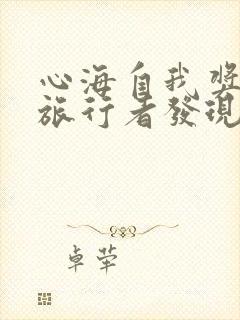 心海自我獎
旅行者發現
卓犖